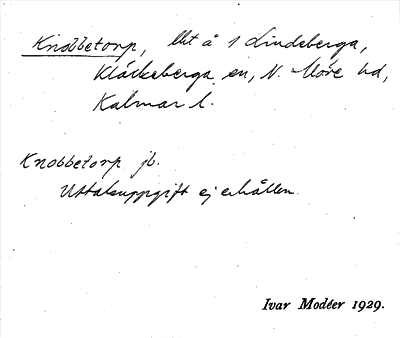 Knobbetorp, lht å 1 Lindeberga,
Kläckeberga sn, N. Möre hd,
Kalmar l.
Knobbetorp jb.
Uttalsuppgift ej erhållen.
Ivar Modéer 1929.